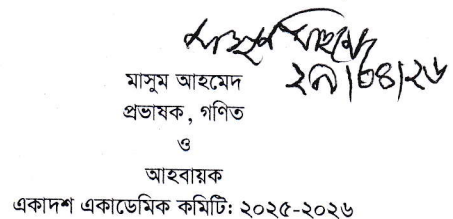 মাসুম আহমেদ
২৯/০৪/২৬
মাসুম আহমেদ
প্রভাষক, গণিত
ও
আহবায়ক
একাদশ একাডেমিক কমিটি: ২০২৫-২০২৬